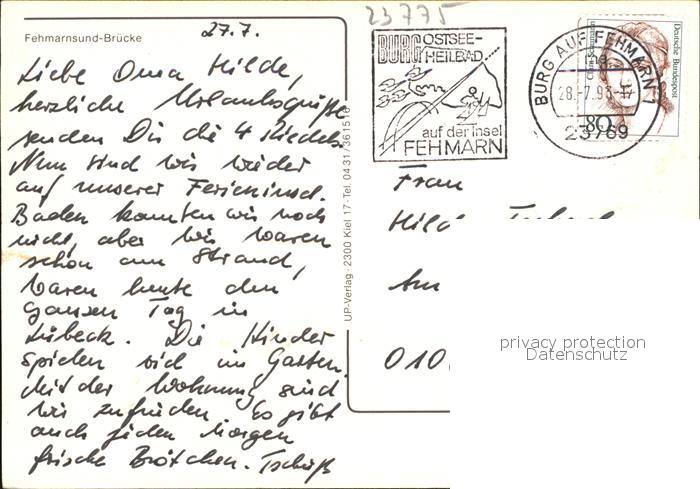 23775
Fehmarnsund-Brücke
27.7.
Liebe Oma Hilde,
herzliche Urlaubsgrüße
senden Dir die 4 Riedels
Nun sind wir wieder
auf unserer Ferieninsel.
Baden konnten wir noch
nicht, aber wir waren
schon am Strand,
waren heute den
ganzen Tag in
Lübeck. Die Kinder
spielen viel im Garten.
Mit der Wohnung sind
wir zufrieden Es gibt
auch jeden Morgen
frische Brötchen. Tschüß
UP-Verlag · 2300 Kiel 17 · Tel. 04 31 / 36 15 16
BURG OSTSEE-
HEILBAD
auf der Insel
FEHMARN
BURG AUF FEHMARN 1
28.-7.93-17
23769
Deutsche Bundespost
80
Frau
Am
010
privacy protection
Datenschutz